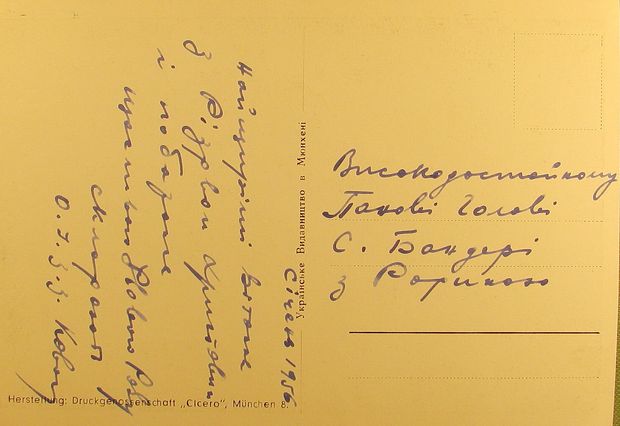 Найщиріші вітання
з Різдвом Христовим
і побажання
щасливого Нового Року
складають
О. І. З. Й.
Січень 1956
Українське Видавництво в Мюнхені
Високодостойному
Панові Голові
С. Бандері
з Родиною
Herstellung: Druckgenossenschaft „Cicero", München 8.